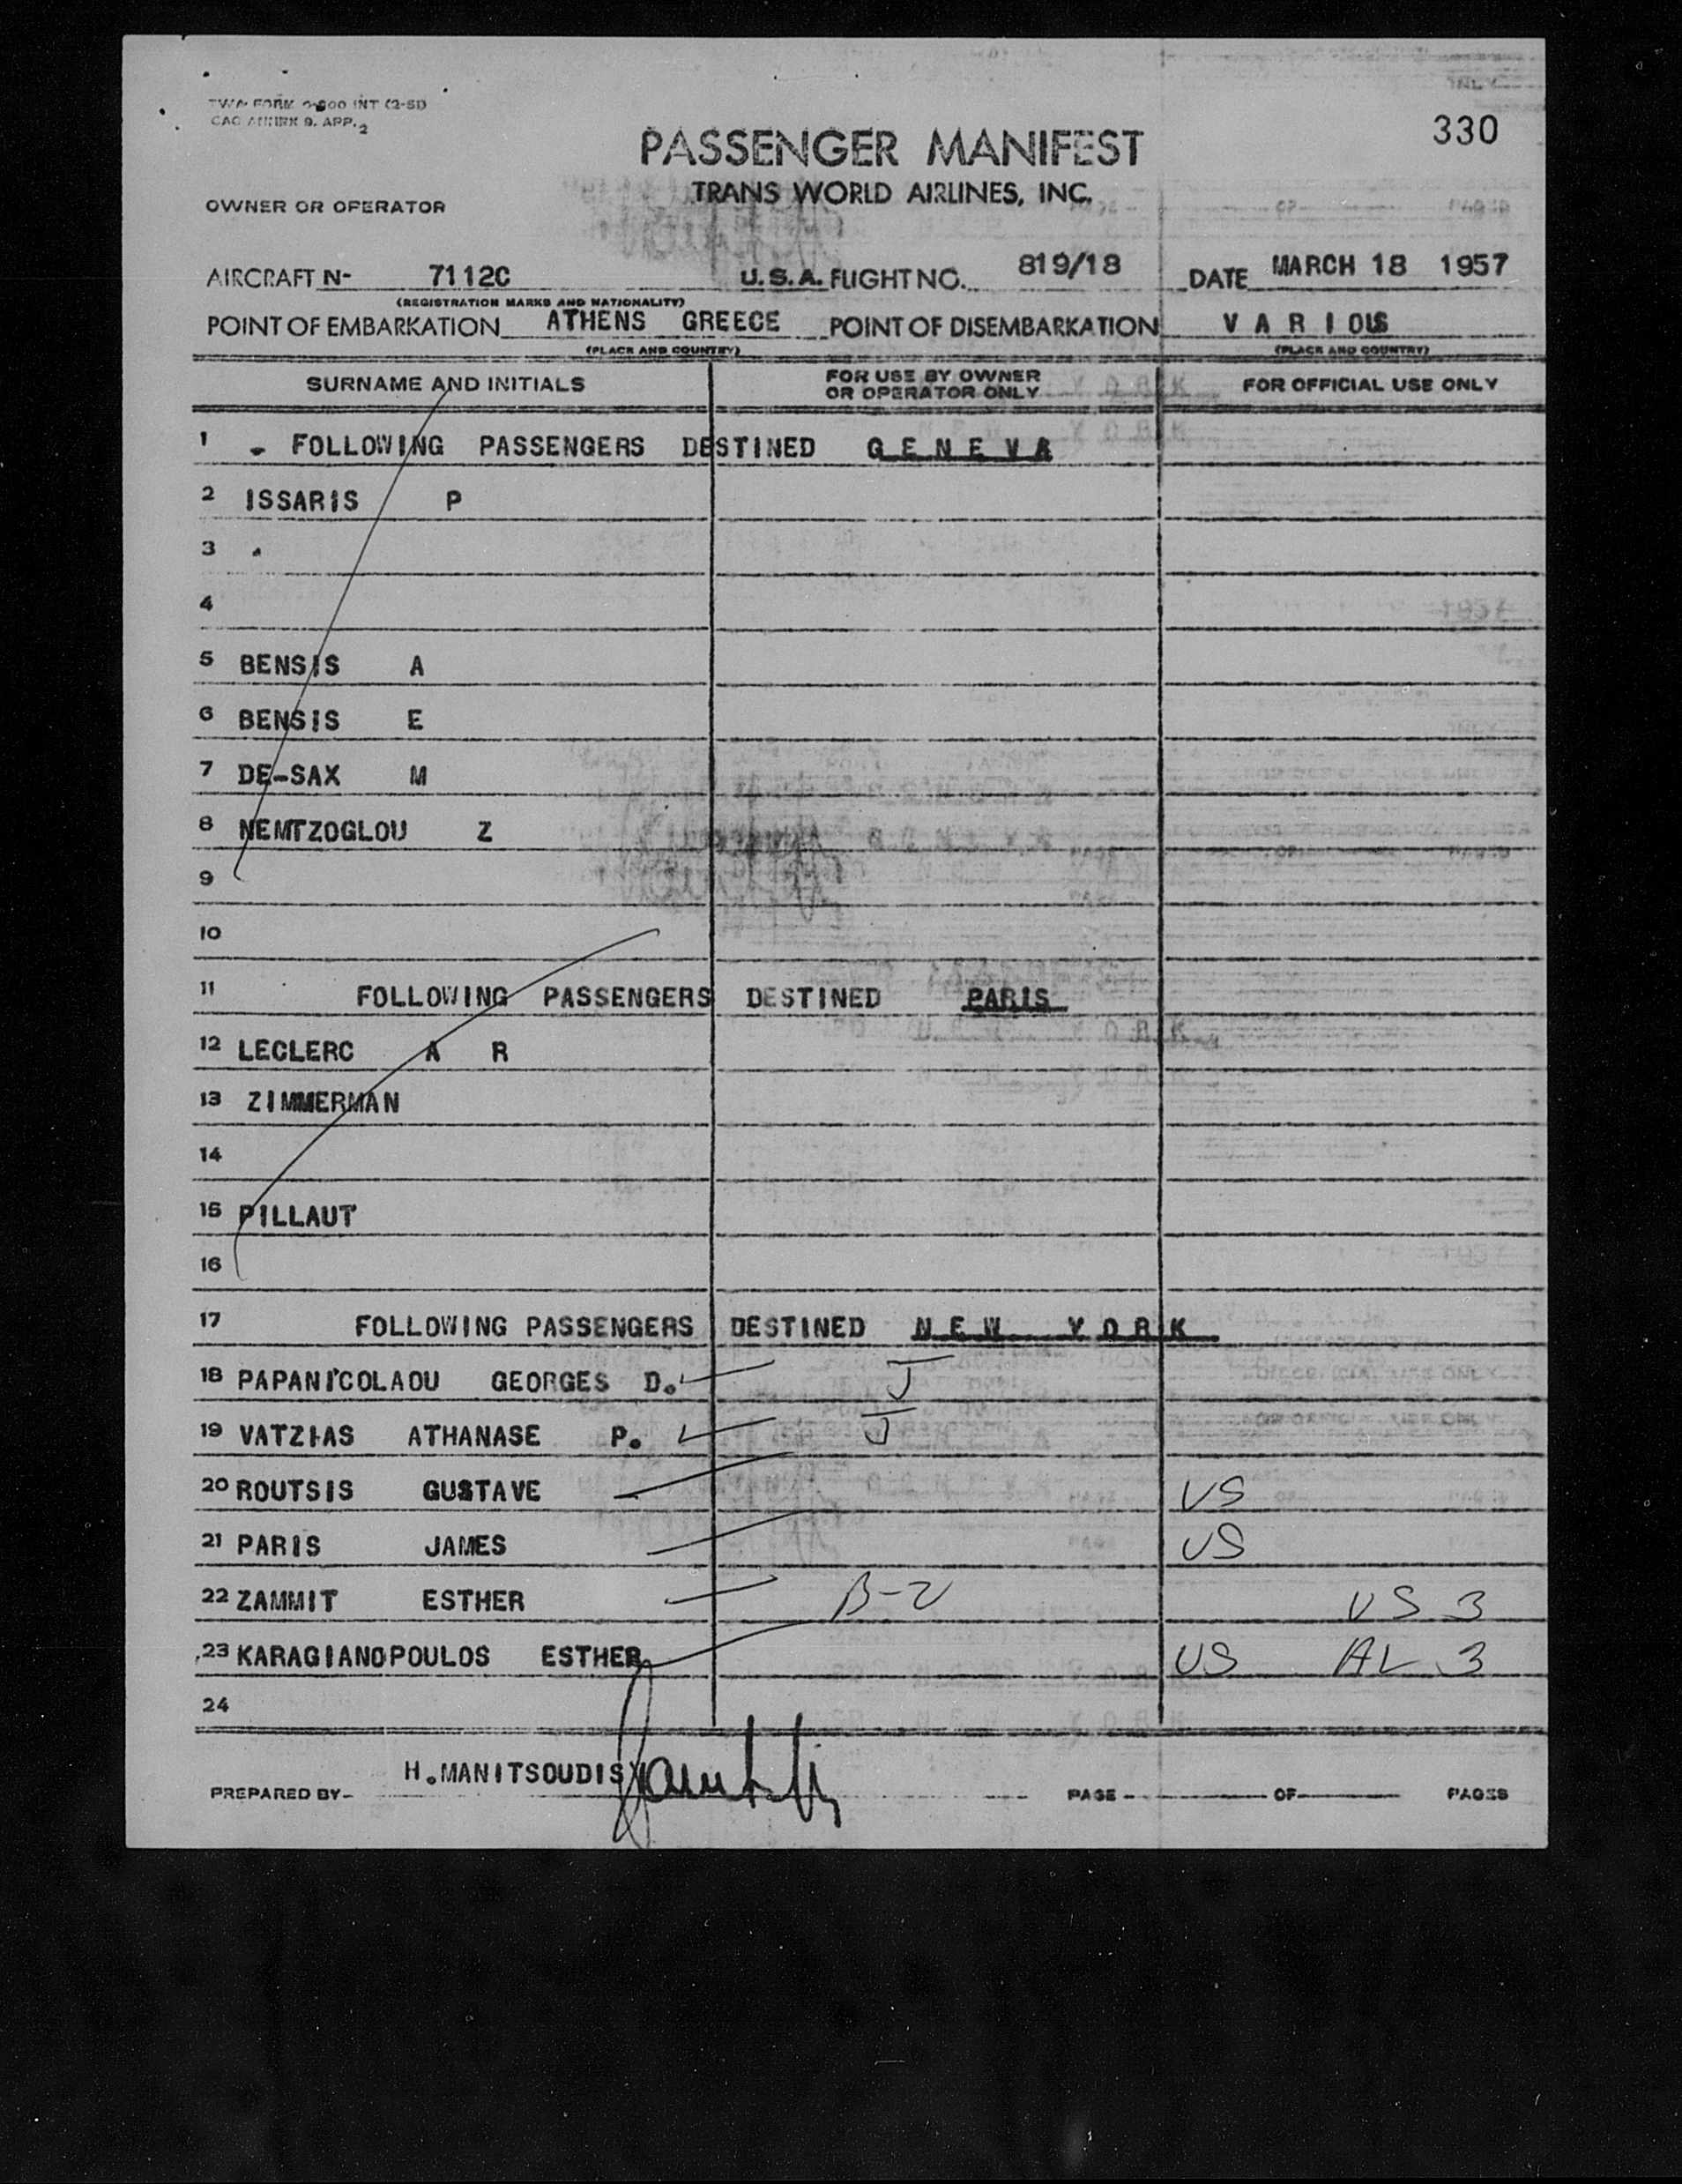 TWA FORM INT (2-51)
9. APP. 2
330
PASSENGER MANIFEST
TRANS WORLD AIRLINES, INC.
OWNER OR OPERATOR
AIRCRAFT N- 7112C U.S.A. FLIGHT NO. 819/18 DATE MARCH 18 1957
(REGISTRATION MARKS AND NATIONALITY)
POINT OF EMBARKATION ATHENS GREECE POINT OF DISEMBARKATION VARIOUS
(PLACE AND COUNTRY) (PLACE AND COUNTRY)
SURNAME AND INITIALS FOR USE BY OWNER OR OPERATOR ONLY FOR OFFICIAL USE ONLY
1 - FOLLOWING PASSENGERS DESTINED GENEVA
2 ISSARIS P
3 .
4
5 BENSIS A
6 BENSIS E
7 DE-SAX M
8 NEMTZOGLOU Z
9
10
11 FOLLOWING PASSENGERS DESTINED PARIS
12 LECLERC A R
13 ZIMMERMAN
14
15 PILLAUT
16
17 FOLLOWING PASSENGERS DESTINED NEW YORK
18 PAPANICOLAOU GEORGES D. J
19 VATZIAS ATHANASE P. J
20 ROUTSIS GUSTAVE US
21 PARIS JAMES US
22 ZAMMIT ESTHER B-2 US 3
23 KARAGIANOPOULOS ESTHER US AL 3
24
PREPARED BY- H.MANITSOUDIS PAGE - OF PAGES